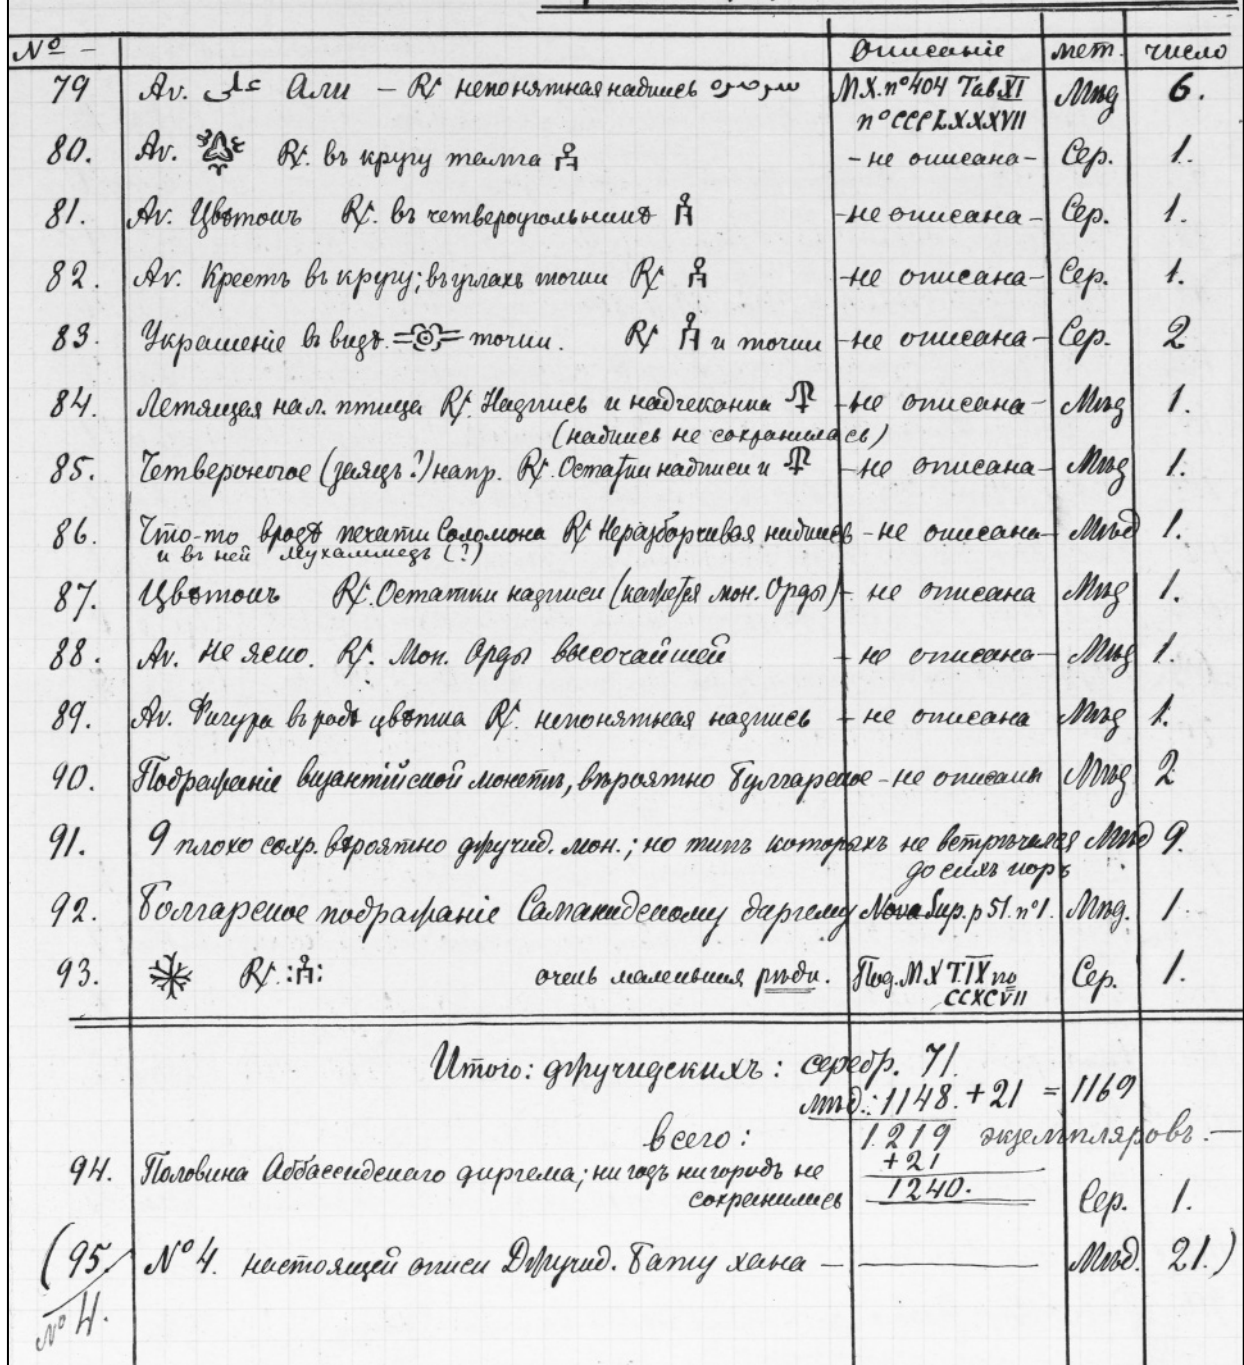 № — Описанiе мет. число
79 Av. علی Али — R/. непонятная надпись М.Х. nº 404 Таб. XI Мѣд 6.
nº CCCLXXXVII
80. Av. R/. въ кругу тамга - не описана - Сер. 1.
81. Av. Цвѣтокъ R/. въ четвероугольникѣ - не описана - Сер. 1.
82. Av. Крестъ въ кругу; въ углахъ точки R/. - не описана - Сер. 1.
83. Украшенiе въ видѣ точки. R/. и точки - не описана - Сер. 2
84. Летящая нал. птица R/. Надпись и надчеканка - не описана - Мѣд 1.
(надпись не сохранилась)
85. Четвероногое (заяцъ?) напр. R/. Остатки надписи и - не описана - Мѣд 1.
86. Что-то вродѣ печати Соломона R/. Неразборчивая надпись - не описана - Мѣд 1.
и въ ней Мухаммедъ (?)
87. Цвѣтокъ R/. Остатки надписи (кажется мон. Орды) - не описана Мѣд 1.
88. Av. не ясно. R/. Мон. Орды высочайшей - не описана - Мѣд 1.
89. Av. Фигура въ родѣ цвѣтка R/. непонятная надпись - не описана Мѣд 1.
90. Подражанiе византiйской монетѣ, вѣроятно Булгарское - не описаны Мѣд 2
91. 9 плохо сохр. вѣроятно джучид. мон.; но типъ которыхъ не встрѣчался Мѣд 9.
до сихъ поръ
92. Болгарское подражанiе Саманидскому диргему Nova Sup. p 51. nº 1. Мѣд. 1.
93. R/. очень маленькая рѣдк. Под. М X T. IX no Сер. 1.
CCXCVII
Итого: джучидскихъ: серебр. 71.
мѣд.: 1148. + 21 = 1169
всего: 1.219 экземпляровъ. —
+ 21
94. Половина Аббассидскаго диргема; ни годъ ни городъ не 1240.
сохранились Сер. 1.
(95. № 4. настоящей описи Джучид. Бату хана — Мѣд. 21.)
№ 4.